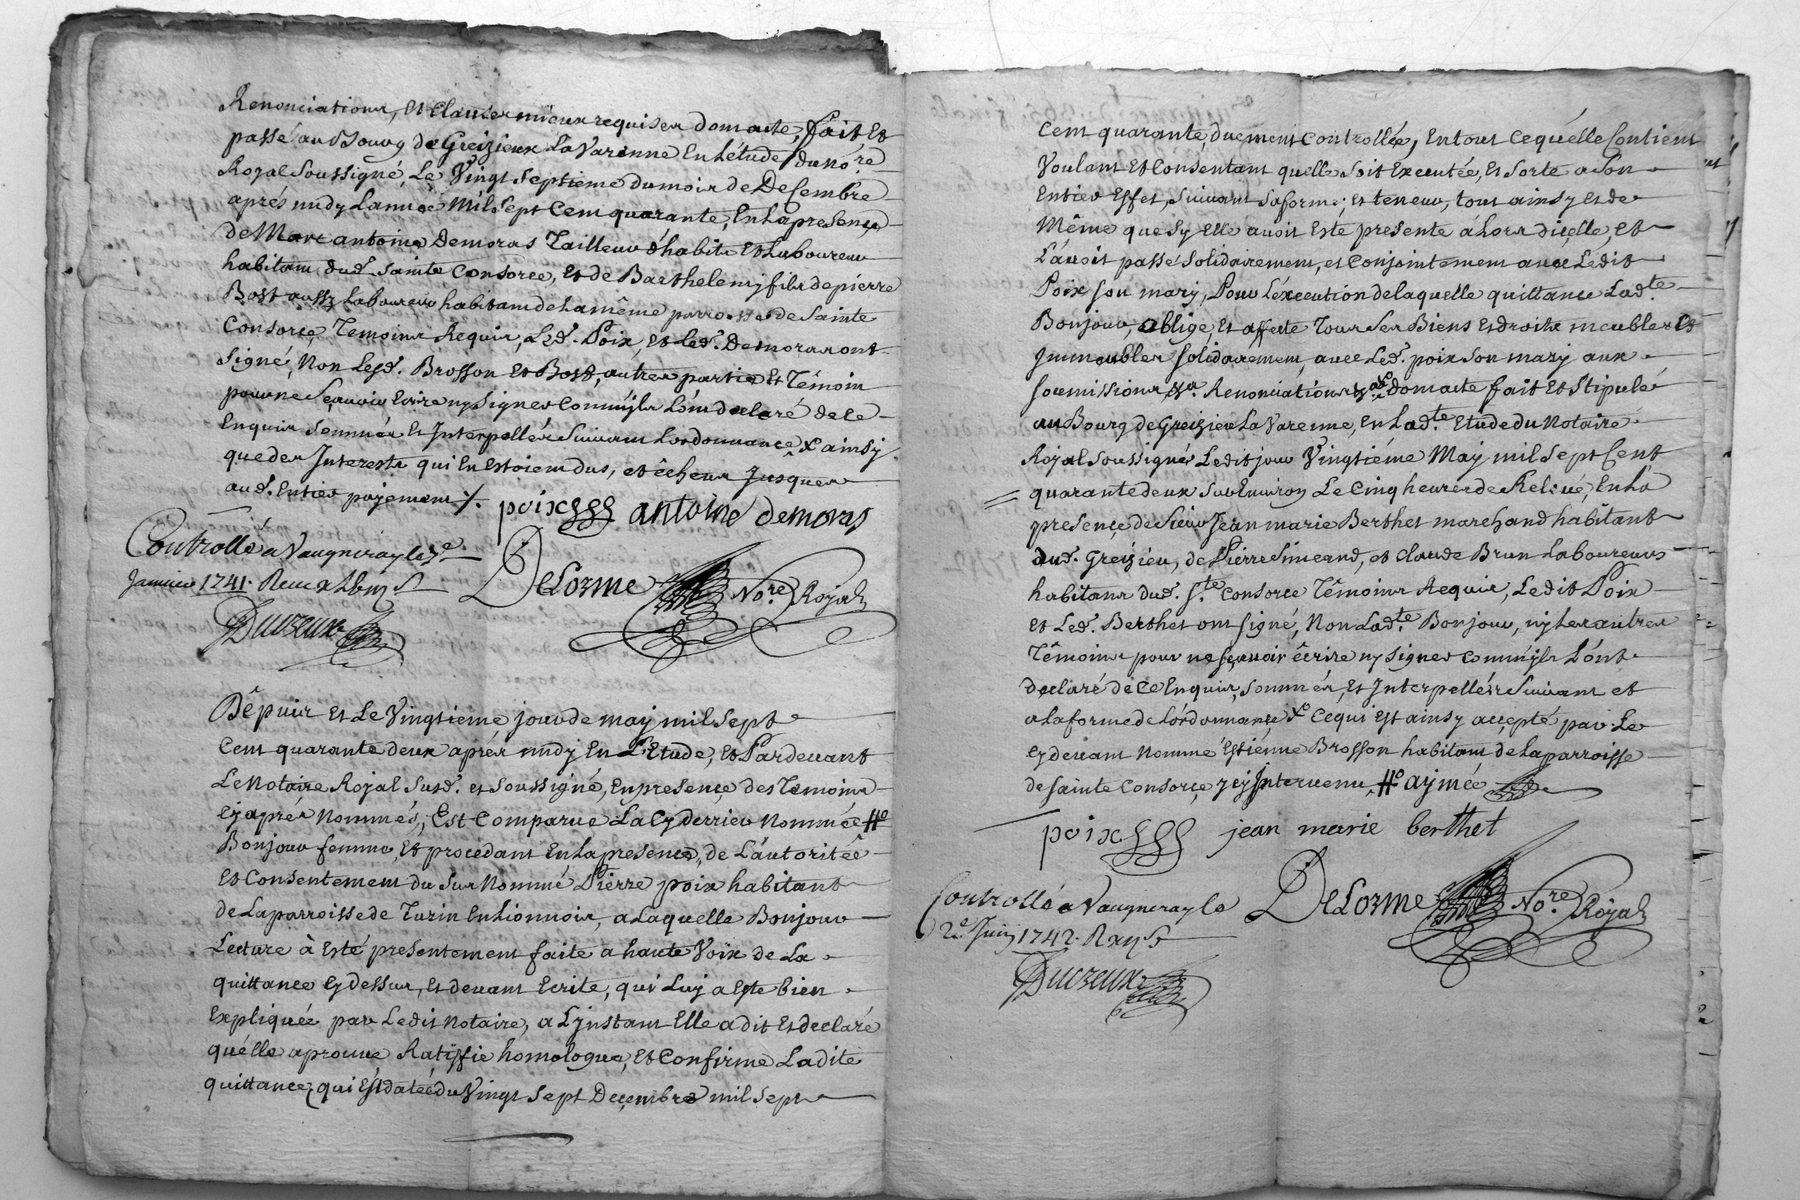 Renonciations, et Clauses mieux requises domaite, fait et
passé au Bourg de Greizieux La Varenne En L'étude du no.re
Royal Soussigné, Le Vingt septieme du mois de Decembre
aprés midy L'année Mil sept Cent quarante, En La presençe
de Marc antoine Demoras Tailleur d'habits Et Laboureur
habitans dud. Sainte Consorce, Et de Barthelemy fils de pierre
Bost aussy Laboureur habitant de La même parroisse de Sainte
Consorçe Temoins Requis, Led. Poix, et Led. Demoras ont
Signé, Non Lesd. Brosson et Bost, autres partie Et Témoin
pour ne Sçavoir Ecrire ny Signer Comm'jls L'ont declaré de Ce
Enquis Sommés Et Interpellés Suivant L'ordonnance x ainsy
que des Interests qui En Estoient dus, et êcheus Jusques
aud. Entier payement ./.
poix antoine demoras
Controllé a Vaugneray le 7.e
Janvier 1741. Reçu
DeLorme No.re Royal
Ducreux
Dêpuis et Le Vingtieme jour de may mil sept
Cent quarante deux aprés midy En L'Etude, et Pardevant
Le Notaire Royal Susd. et Soussigné, En presençe des Temoins
Cy aprés Nommés, Est Comparüe La Cy derrier Nommée #
Bonjour femme, et procedant En La presençe, de L'autoritée
Et Consentement du Sus Nommé Pierre poix habitant
de La parroisse de Turin En Lionnois, a Laquelle Bonjour
Lecture à Esté presentement faite a haute Voix de La
quittance Cy dessus, Et devant Ecrite, qui Luy a Eté bien
Expliquée par Ledit Notaire, a L'jnstant Elle a dit Et declaré
qu'élle aprouve Ratiffie homologue, Et Confirme Ladite
quittance, qui Est datée du Vingt Sept Deçembre mil Sept
Cent quarante, duement Controllée, En tout Ce qu'élle Contient
Voulant Et Consentant qu'elle Soit Executée, Et Sorte a Son
Entier Effet, Suivant Sa forme, et teneur, tout ainsy et de
Même que Sy Elle avoit Esté presente á Lors d'içelle, et
L'avoit passé Solidairement, et Conjointement avec Ledit
Poix Son mary, Pour L'éxecution de laquelle quittance Lad.te
Bonjour, oblige, Et affecte Tous Ses Biens Et droits meubles Et
Immeubles Solidairement, avec Led. poix Son mary aux
Soumissions Renonciations domaite fait Et Stipulé
au Bourg de Greizieu La Varenne, En Lad.te Etude du Notaire
Royal Soussigné Ledit jour Vingtiéme May mil Sept Cent
quarante deux Sur Environ Le Cinq heures de Releve, En La
presençe de Sieur Jean marie Berthet marchand habitant
dud. Greizieu, de Pierre Simeand, et Claude Brun Laboureurs
habitans dud. S.te Consorce Têmoins Requis, Ledit Poix
et Led. Berthet ont Signé, Non Lad.te Bonjour, ny Les autres
Têmoins pour ne Sçavoir êcrire ny Signer Comm'jls L'ônt
declaré de Ce Enquis, Sommés, Et Interpellés Suivant et
a La forme de L'ordonnance x Ce qui Est ainsy accepté par Le
Cy devant Nommé Estiénne Brosson habitant de La parroisse
de Sainte Consorçe Jcy Intervenu, # aymée
poix jean marie berthet
Controllé a Vaugneray le
2.e Juin 1742.
DeLorme No.re Royal
Ducreux